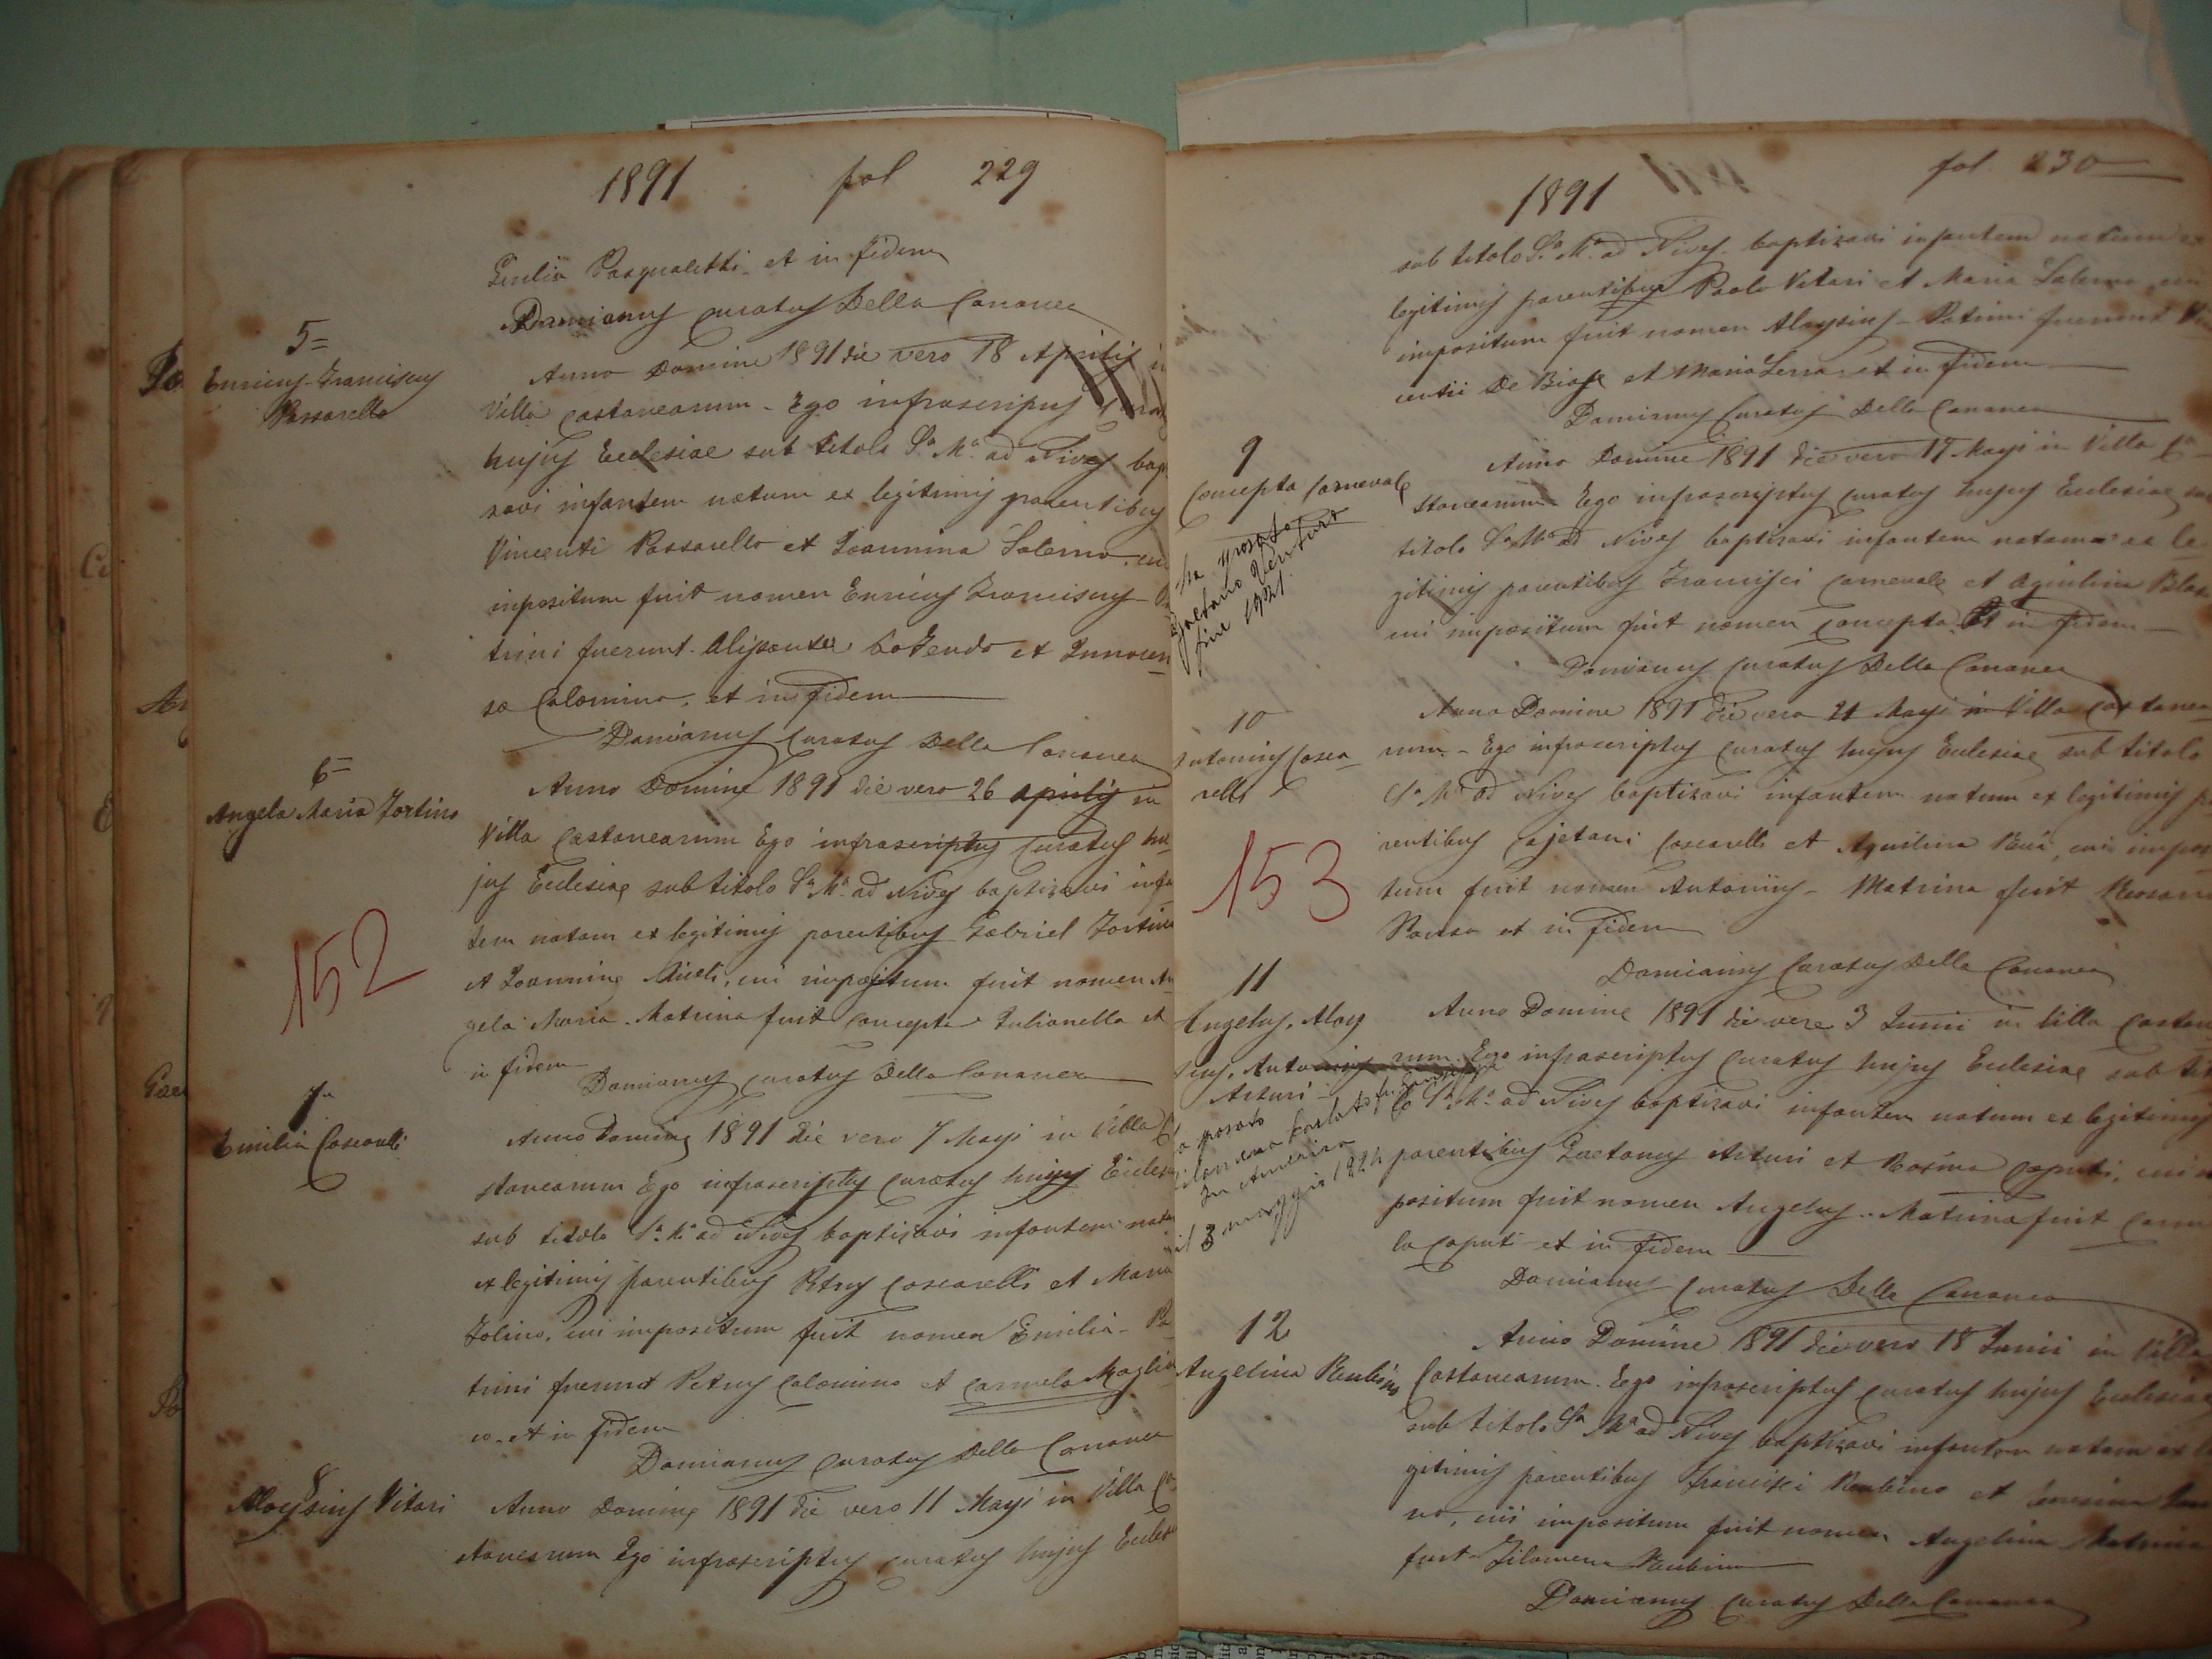 1891 fol 229
Giulia Pasqualetti et in fidem
Damianus curatus Della Cananea
5=
Enricus Franciscus
Passarello
Anno Domine 1891 die vero 18 Aprilis in
Villa Castanearum - Ego infrascriptus
hujus Ecclesiae sub titolo Sa. Ma. ad Nives bap
zavi infantem natum ex legitimis parentibus
Vincenti Passarello et Joannina Salerno, cui
inpositum fuit nomen Enricus Franciscus -
trini fuerunt et Innocen
sa Calomino, et in fidem
Damianus Curatus Della Cananea
6=
Angela Maria Fortino
Anno Domine 1891 die vero 26 aprilis in
Villa Castanearum Ego infrascriptus Curatus hu
jus Ecclesiae sub titolo Sa. Ma. ad Nives baptizavi infa
tem natam ex legitimis parentibus Gabriel Fortino
et Joannina cui impositum fuit nomen An
gela Maria. Matrina fuit Concepta Iulianello et
in fidem
Damianus curatus Della Cananea
152
7=
Emilia Coscarelli
Anno Domine 1891 die vero 7 Mayi in Villa Ca
stanearum Ego infrascriptus Curatus hujus Eccles
sub titolo Sa. Ma. ad Nives baptizavi infantem nata
ex legitimis parentibus Petrus Coscarelli et Maria
cui impositum fuit nomen Emilia - Pa
trini fuerunt Petrus Calomino et Carmela Maglio
co. et in fidem
Damianus Curatus Della Cananea
8
Aloysius Vitari
Anno Domine 1891 die vero 11 Mayi in Villa Ca
stanearum Ego infrascriptus curatus hujus Eccles
1891 fol 230
sub titolo Sa. Ma. ad Nives baptizavi infantem natum ex
legitimis parentibus Paolo Vitari et Maria Salerno, cui
impositum fuit nomen Aloysius - Patrini fuerunt Vin
centii De Biase et Maria Serra et in fidem
Damianus Curatus Della Cananea
9
Concepta Carnevale
ha sposato
Gaetano Ventura
fine 1921.
Anno Domine 1891 die vero 17 Mayi in Villa Ca
stanearum Ego infrascriptus curatus hujus Ecclesiae sub
titolo Sa. Ma. ad Nives baptizavi infantem natam ex le
gitimis parentibus Francisci Carnevale et Aquilina
cui impositum fuit nomen Concepta. Et in fidem
Damianus Curatus Della Cananea
10
Antonius Cosca
relli
153
Anno Domine 1891 die vero 21 Mayi in Villa Castanea
rum - Ego infrascriptus curatus hujus Ecclesiae sub titolo
Sa. Ma. ad Nives baptizavi infantem natum ex legitimis pa
rentibus Cajetani Coscarelli et Aquilina cui impos
tum fuit nomen Antonius - Matrina fuit
et in fidem
Damianus Curatus Della Cananea
11
Angelus, Aloy
sius, Antonius
Arturi
Anno Domine 1891 die vero 3 Junii in Villa Castan
rum. Ego infrascriptus curatus hujus Ecclesiae sub tit
lo Sa. Ma. ad Nives baptizavi infantem natum ex legitimis
ha sposato
In America
il 3 maggio 1924
parentibus Gaetanus Arturi et Rosina Caputi, cui im
positum fuit nomen Angelus. Matrina fuit Carm
la Caputi et in fidem
Damianus Curatus Della Cananea
12
Angelina Rubino
Anno Domine 1891 die vero 18 Junii in Villa
Castanearum. Ego infrascriptus curatus hujus Ecclesiae
sub titolo Sa. Ma. ad Nives baptizavi infantem natam ex le
gitimis parentibus Francisci Rubino et
no, cui impositum fuit nomen Angelina Matrina
fuit Filomena Rubino
Damianus Curatus Della Cananea